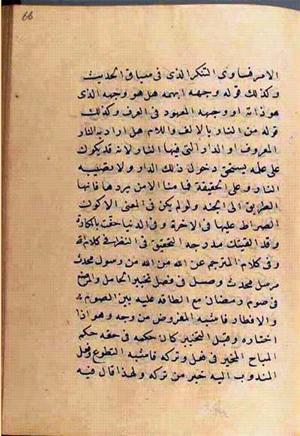 66
الامر فساوى التنكر الذى فى مساق الحديث
وكذلك قوله وجهه ابهمه هل هو وجهه الذى
هو ذاته او وجهه المعهود فى العرف وكذلك
قوله من النار بالالف واللام هل اراد به النار
المعروف او الدار التى فيها النار لانه قد يكون
على عمله يستحق دخول تلك الدار ولا تصيبه
النار وعلى الحقيقة فما منا الامن يردها فانها
الطريق الى الجنة ولو لم يكن فى المعنى الا كون
الصراط عليها فى الاخرة وفى الدنيا حفت بالمكاره
وقد القيتك مدرجه التحقيق فى النظر فى كلام الله
وفى كلام المترجم عن الله من الله من رسول محدث
مرسل محدث وصل فى فصل تخيير الحامل والمرضع
فى صوم رمضان مع الطاقة عليه بين الصوم
والافطار فاشبه المفروض من وجه وهو اذا
اختاره وقبل التخيير كان حكمه فى حقه حكم
المباح المخير فى فعله وتركه فاشبه التطوع وفعل
المندوب اليه خير من تركه ولهذا قال فيه